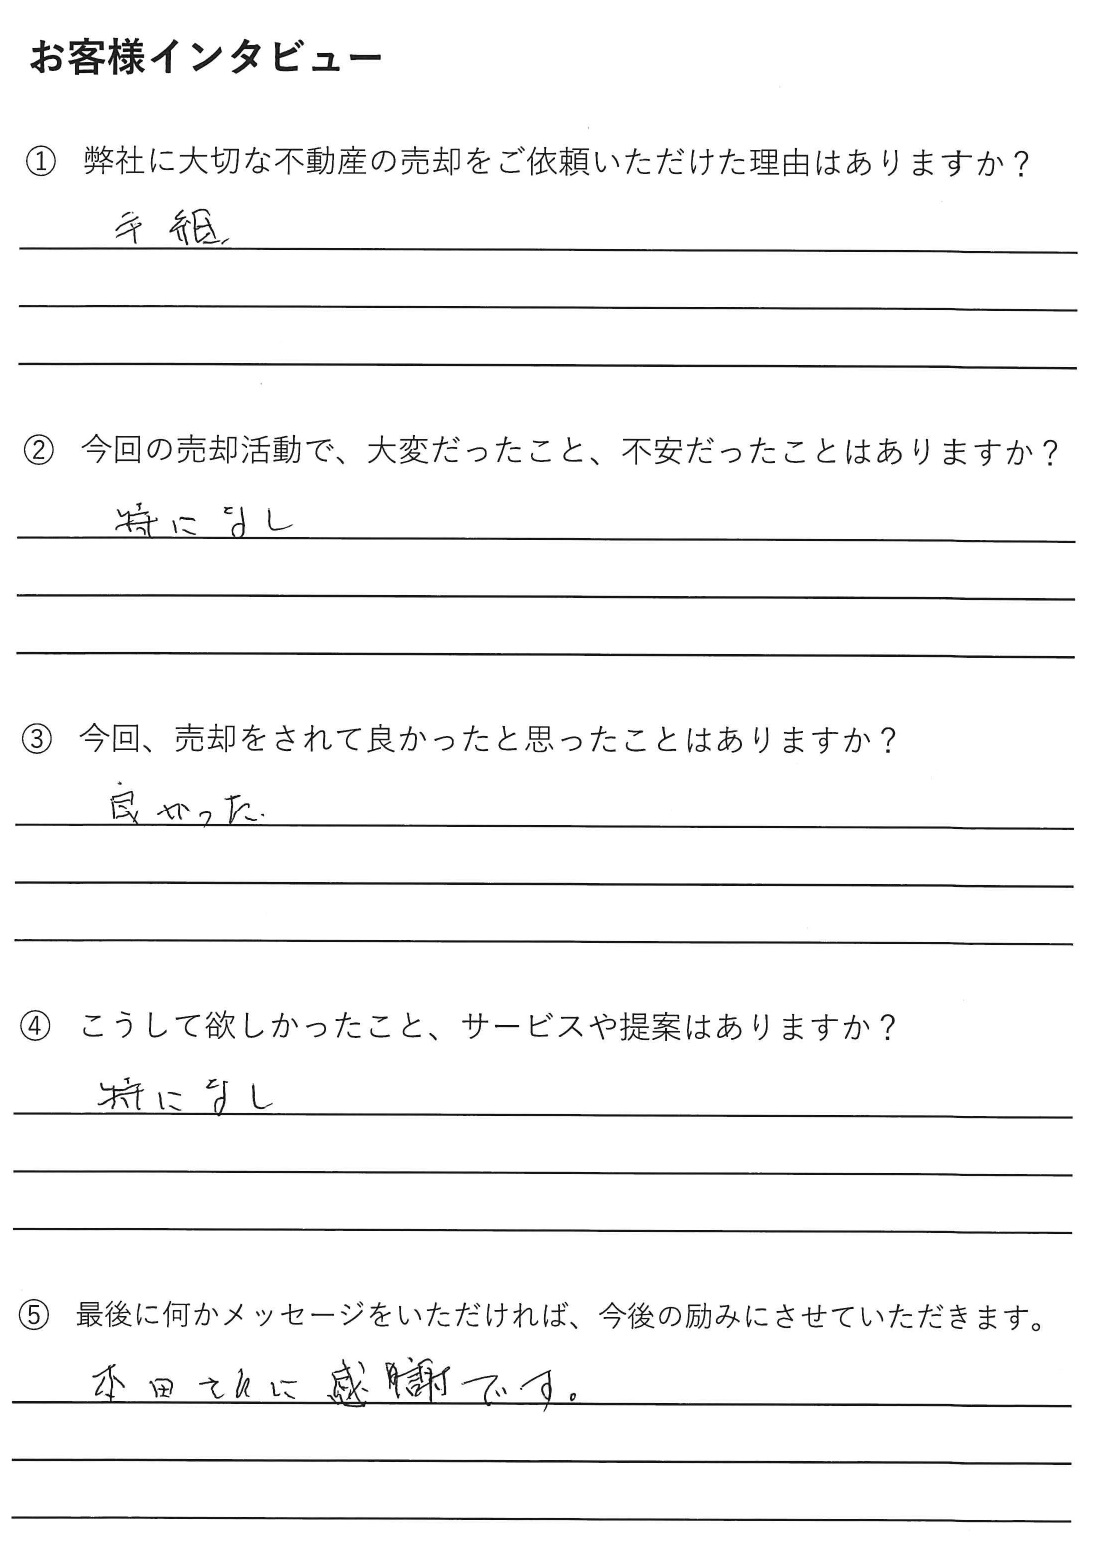 お客様インタビュー
① 弊社に大切な不動産の売却をご依頼いただけた理由はありますか？
手紙
② 今回の売却活動で、大変だったこと、不安だったことはありますか？
特になし
③ 今回、売却をされて良かったと思ったことはありますか？
良かった.
④ こうして欲しかったこと、サービスや提案はありますか？
特になし
⑤ 最後に何かメッセージをいただければ、今後の励みにさせていただきます。
本田さんに感謝です。